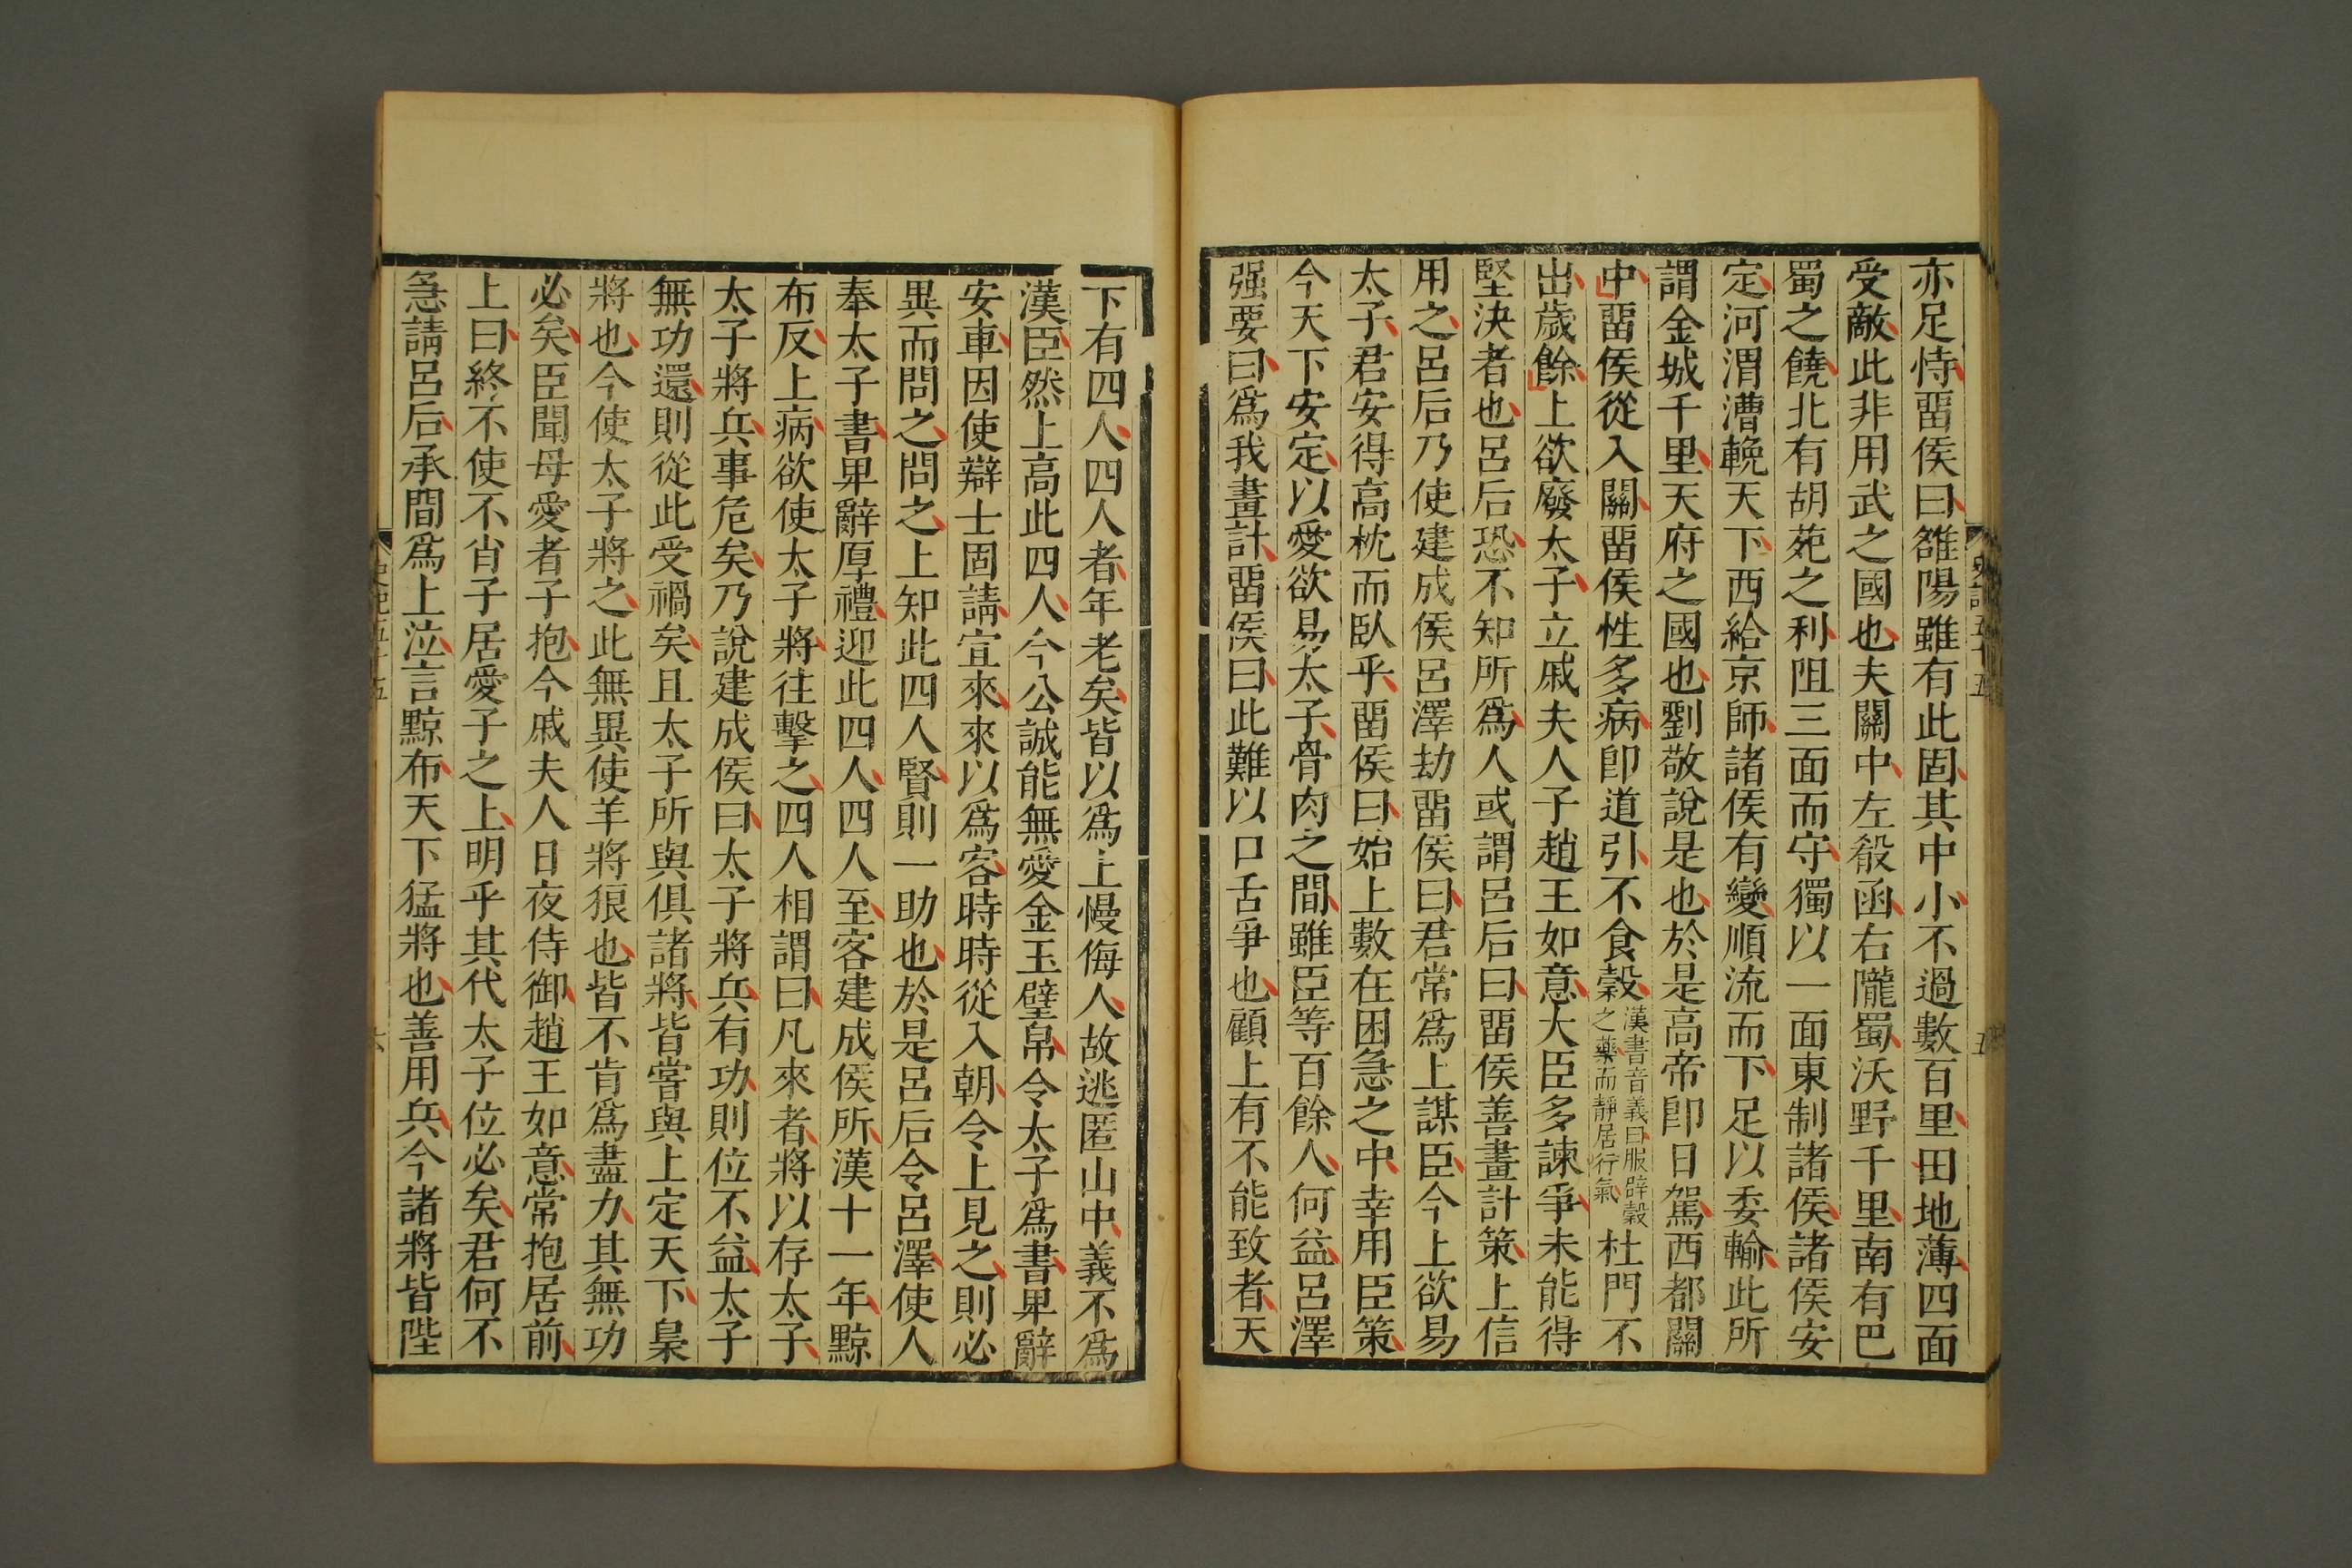 亦足恃畱侯曰雒陽雖有此固其中小不過數百里田地薄四面
受敵此非用武之國也夫關中左殽函右隴蜀沃野千里南有巴
蜀之饒北有胡苑之利阻三面而守獨以一面東制諸侯諸侯安
定河渭漕輓天下西給京師諸侯有變順流而下足以委輸此所
謂金城千里天府之國也劉敬說是也於是高帝卽日駕西都關
中畱侯從入關畱侯性多病卽道引不食穀漢書音義曰服辟穀之藥而靜居行氣杜門不
出歲餘上欲廢太子立戚夫人子趙王如意大臣多諫爭未能得
堅決者也呂后恐不知所爲人或謂呂后曰畱侯善畫計策上信
用之呂后乃使建成侯呂澤劫畱侯曰君常爲上謀臣今上欲易
太子君安得高枕而臥乎畱侯曰始上數在困急之中幸用臣策
今天下安定以愛欲易太子骨肉之間雖臣等百餘人何益呂澤
强要曰爲我畫計畱侯曰此難以口舌爭也顧上有不能致者天
史記五十五
五
下有四人四人者年老矣皆以爲上慢侮人故逃匿山中義不爲
漢臣然上高此四人今公誠能無愛金玉璧帛令太子爲書卑辭
安車因使辯士固請宜來來以爲客時時從入朝令上見之則必
異而問之問之上知此四人賢則一助也於是呂后令呂澤使人
奉太子書卑辭厚禮迎此四人四人至客建成侯所漢十一年黥
布反上病欲使太子將往擊之四人相謂曰凡來者將以存太子
太子將兵事危矣乃說建成侯曰太子將兵有功則位不益太子
無功還則從此受禍矣且太子所與俱諸將皆嘗與上定天下梟
將也今使太子將之此無異使羊將狼也皆不肯爲盡力其無功
必矣臣聞母愛者子抱今戚夫人日夜侍御趙王如意常抱居前
上曰終不使不肖子居愛子之上明乎其代太子位必矣君何不
急請呂后承間爲上泣言黥布天下猛將也善用兵今諸將皆陛
史記五十五
六